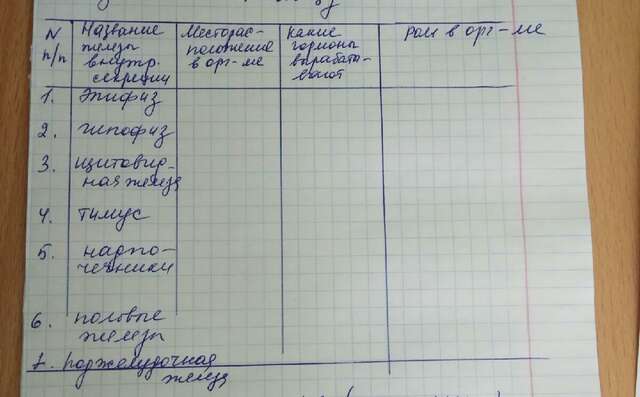 N п/п
Название железы внутр. секреции
Месторас-
положение
в орг-ме
какие
гормоны
вырабаты-
вают
роль в орг-ме
1. Эпифиз
2. гипофиз
3. щитовид-
ная железа
4. тимус
5. надпо-
чечники
6. половые
железы
7. поджелудочная
железа